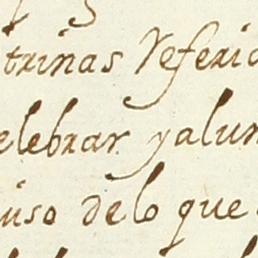 trinas referid
elebrar yalun
uso delo que